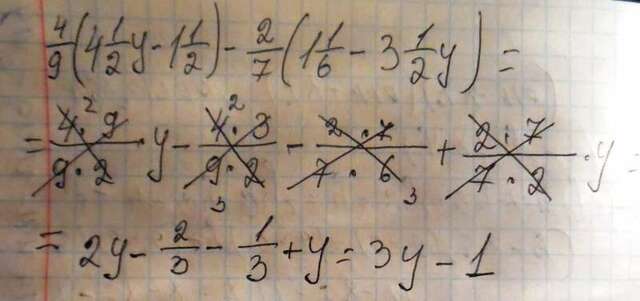 4/9(4 1/2 y - 1 1/2) - 2/7(1 1/6 - 3 1/2 y) =
= 4·9/9·2 · y - 4·3/9·2 - 2·7/7·6 + 2·7/7·2 · y =
= 2y - 2/3 - 1/3 + y = 3y - 1